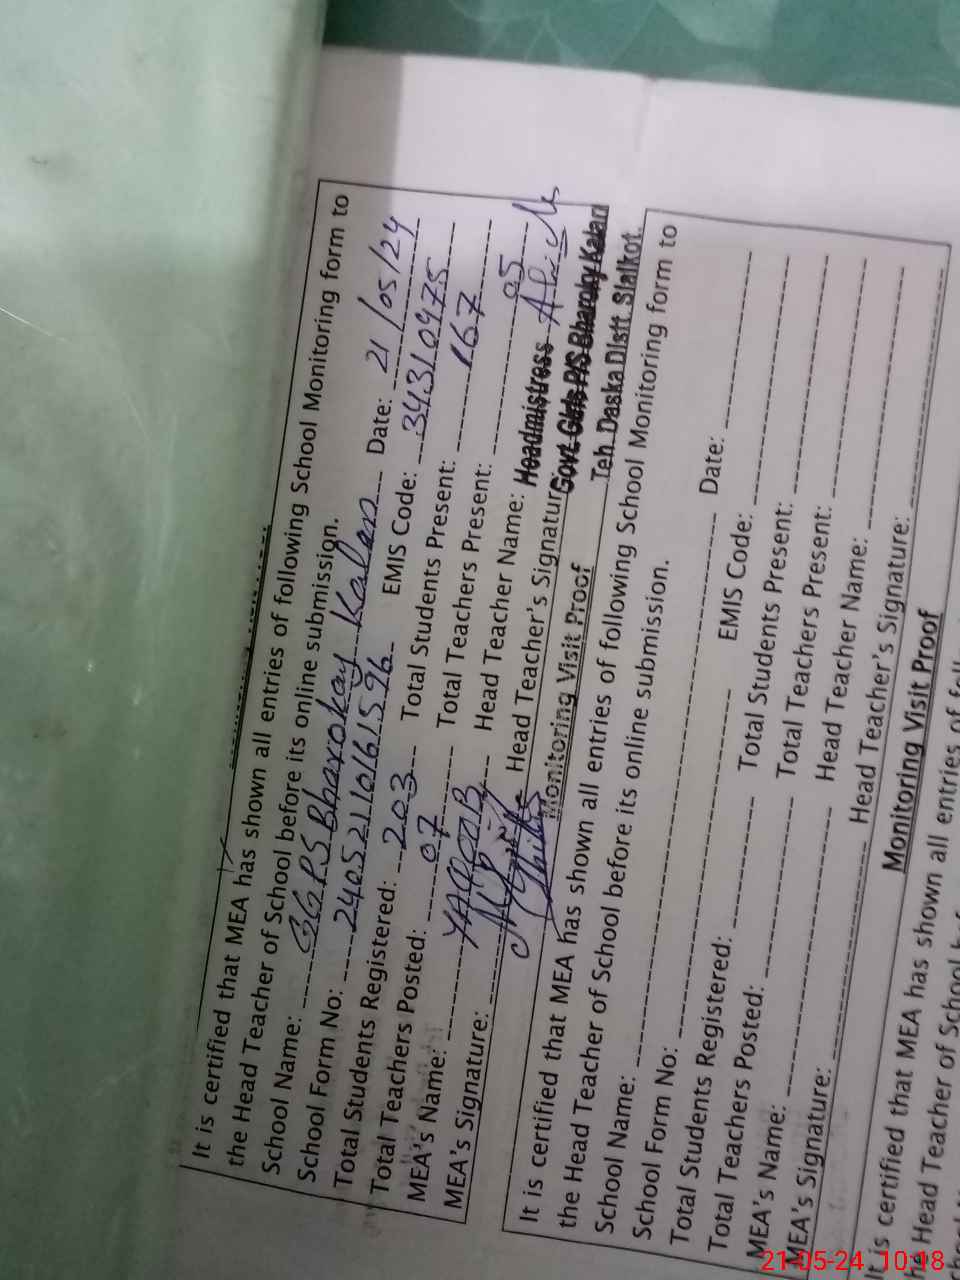 It is certified that MEA has shown all entries of following School Monitoring form to
the Head Teacher of School before its online submission.
School Name: GGPS Bharokay Kalan Date: 21/05/24
School Form No: 24052110161596 EMIS Code: 34310975
Total Students Registered: 203 Total Students Present: 167
Total Teachers Posted: 07 Total Teachers Present: 05
MEA's Name: YAQOOB Head Teacher Name:
MEA's Signature: Head Teacher's Signature:
Headmistress
Govt. Girls P/S Bharoky Kalan
Teh Daska Distt. Sialkot.
Monitoring Visit Proof
It is certified that MEA has shown all entries of following School Monitoring form to
the Head Teacher of School before its online submission.
School Name: Date:
School Form No: EMIS Code:
Total Students Registered: Total Students Present:
Total Teachers Posted: Total Teachers Present:
MEA's Name: Head Teacher Name:
MEA's Signature: Head Teacher's Signature:
Monitoring Visit Proof
It is certified that MEA has shown all entries of
the Head Teacher of School
21-05-24 10:18